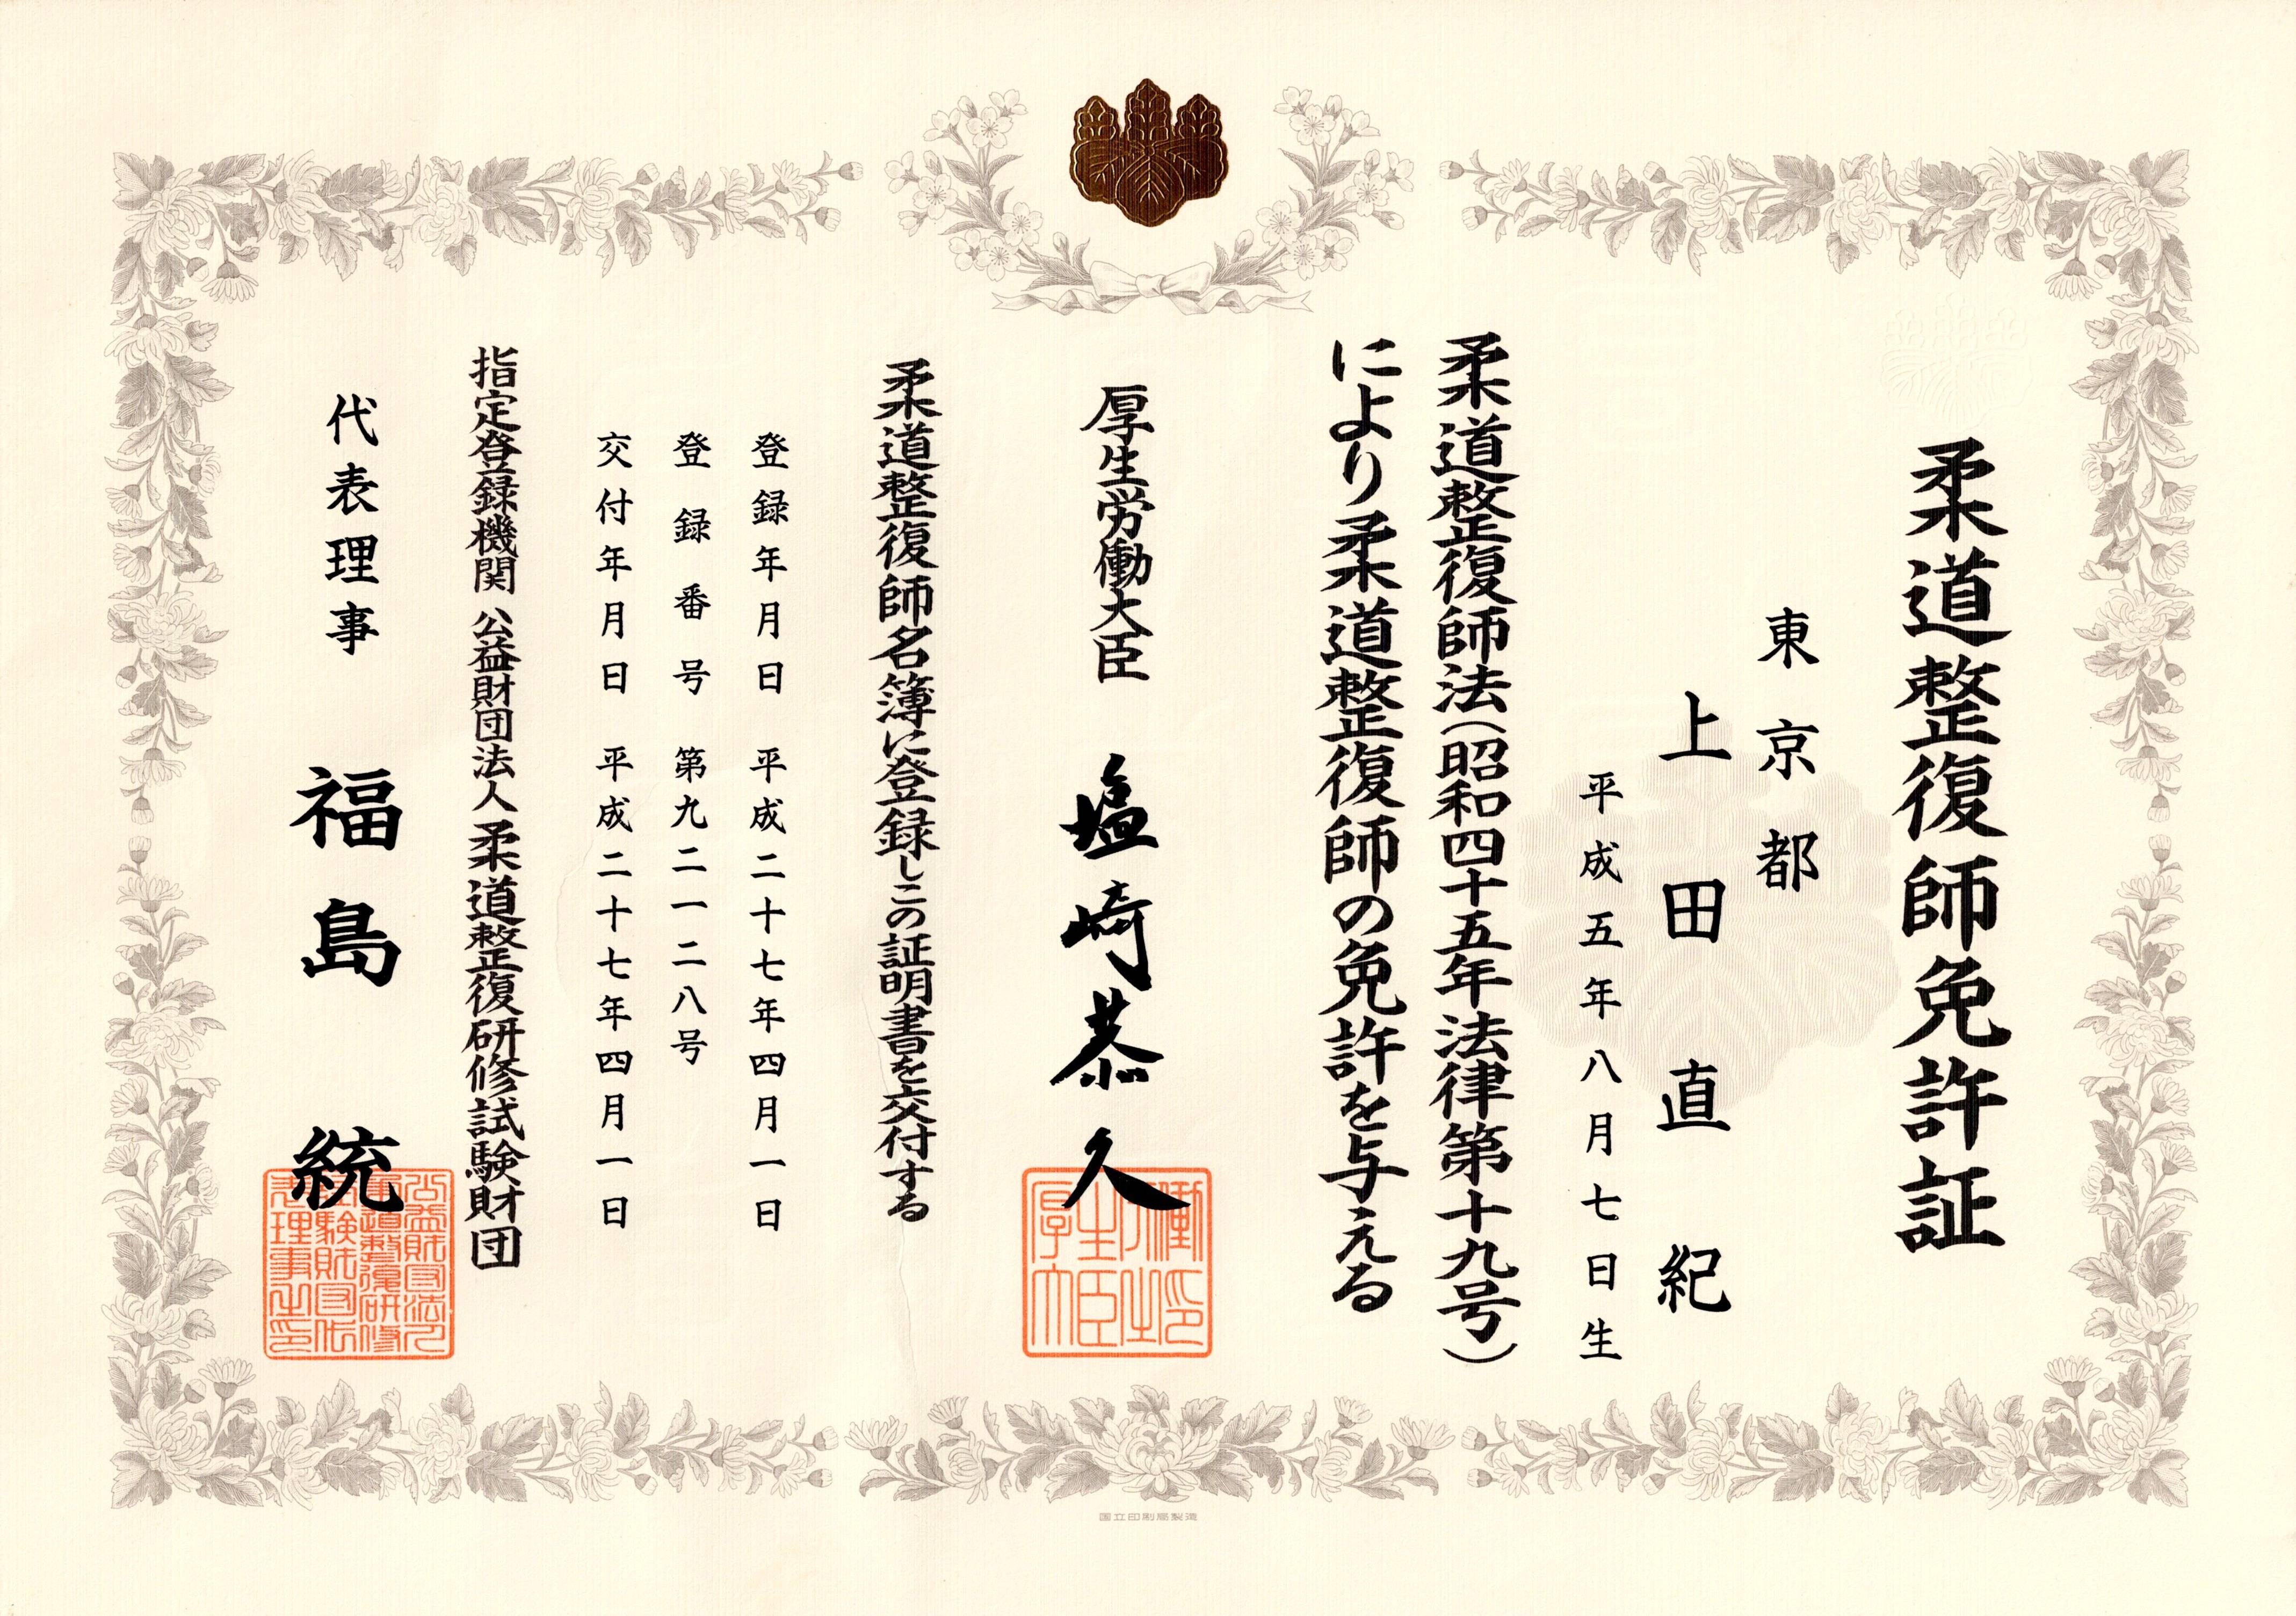 柔道整復師免許証
東京都
上田直紀
平成五年八月七日生
柔道整復師法（昭和四十五年法律第十九号）
により柔道整復師の免許を与える
厚生労働大臣 塩崎恭久
柔道整復師名簿に登録しこの証明書を交付する
登録年月日 平成二十七年四月一日
登録番号 第九二一二八号
交付年月日 平成二十七年四月一日
指定登録機関 公益財団法人柔道整復研修試験財団
代表理事 福島統
国立印刷局製造